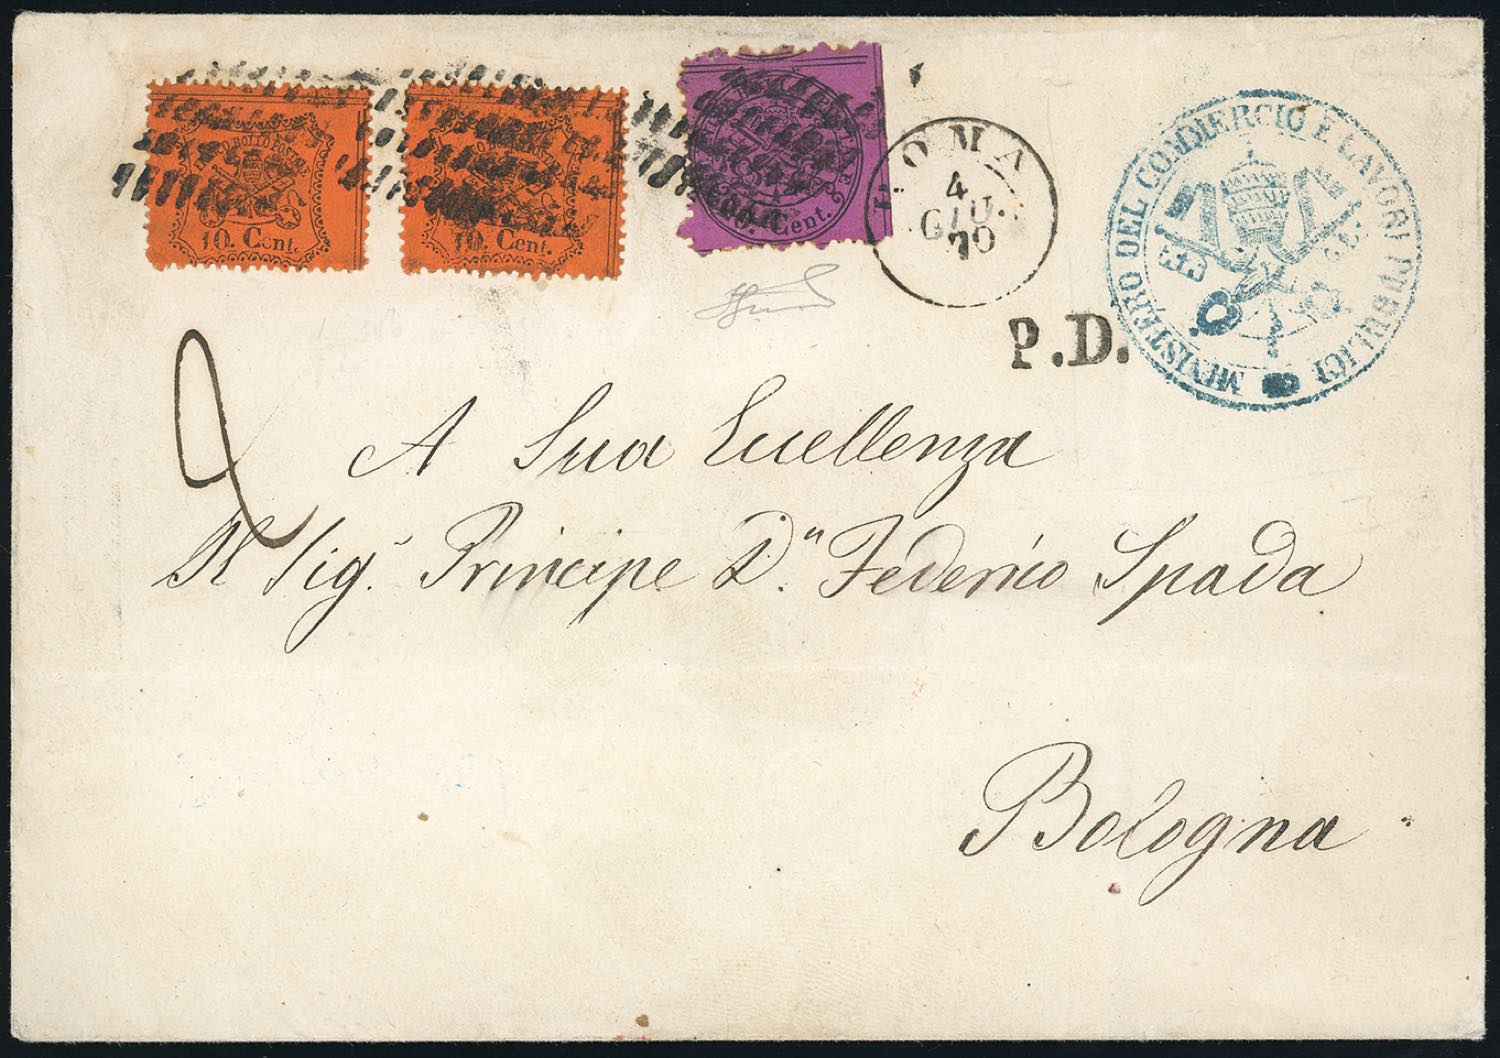 FRANCO BOLLO POSTALE
10. Cent.
10. Cent.
Cent.
ROMA
4
GIU.
70
P.D.
MINISTERO DEL COMMERCIO E LAVORI PUBBLICI
2
A Sua Eccellenza
Il Sig.r Principe D.n Federico Spada
Bologna